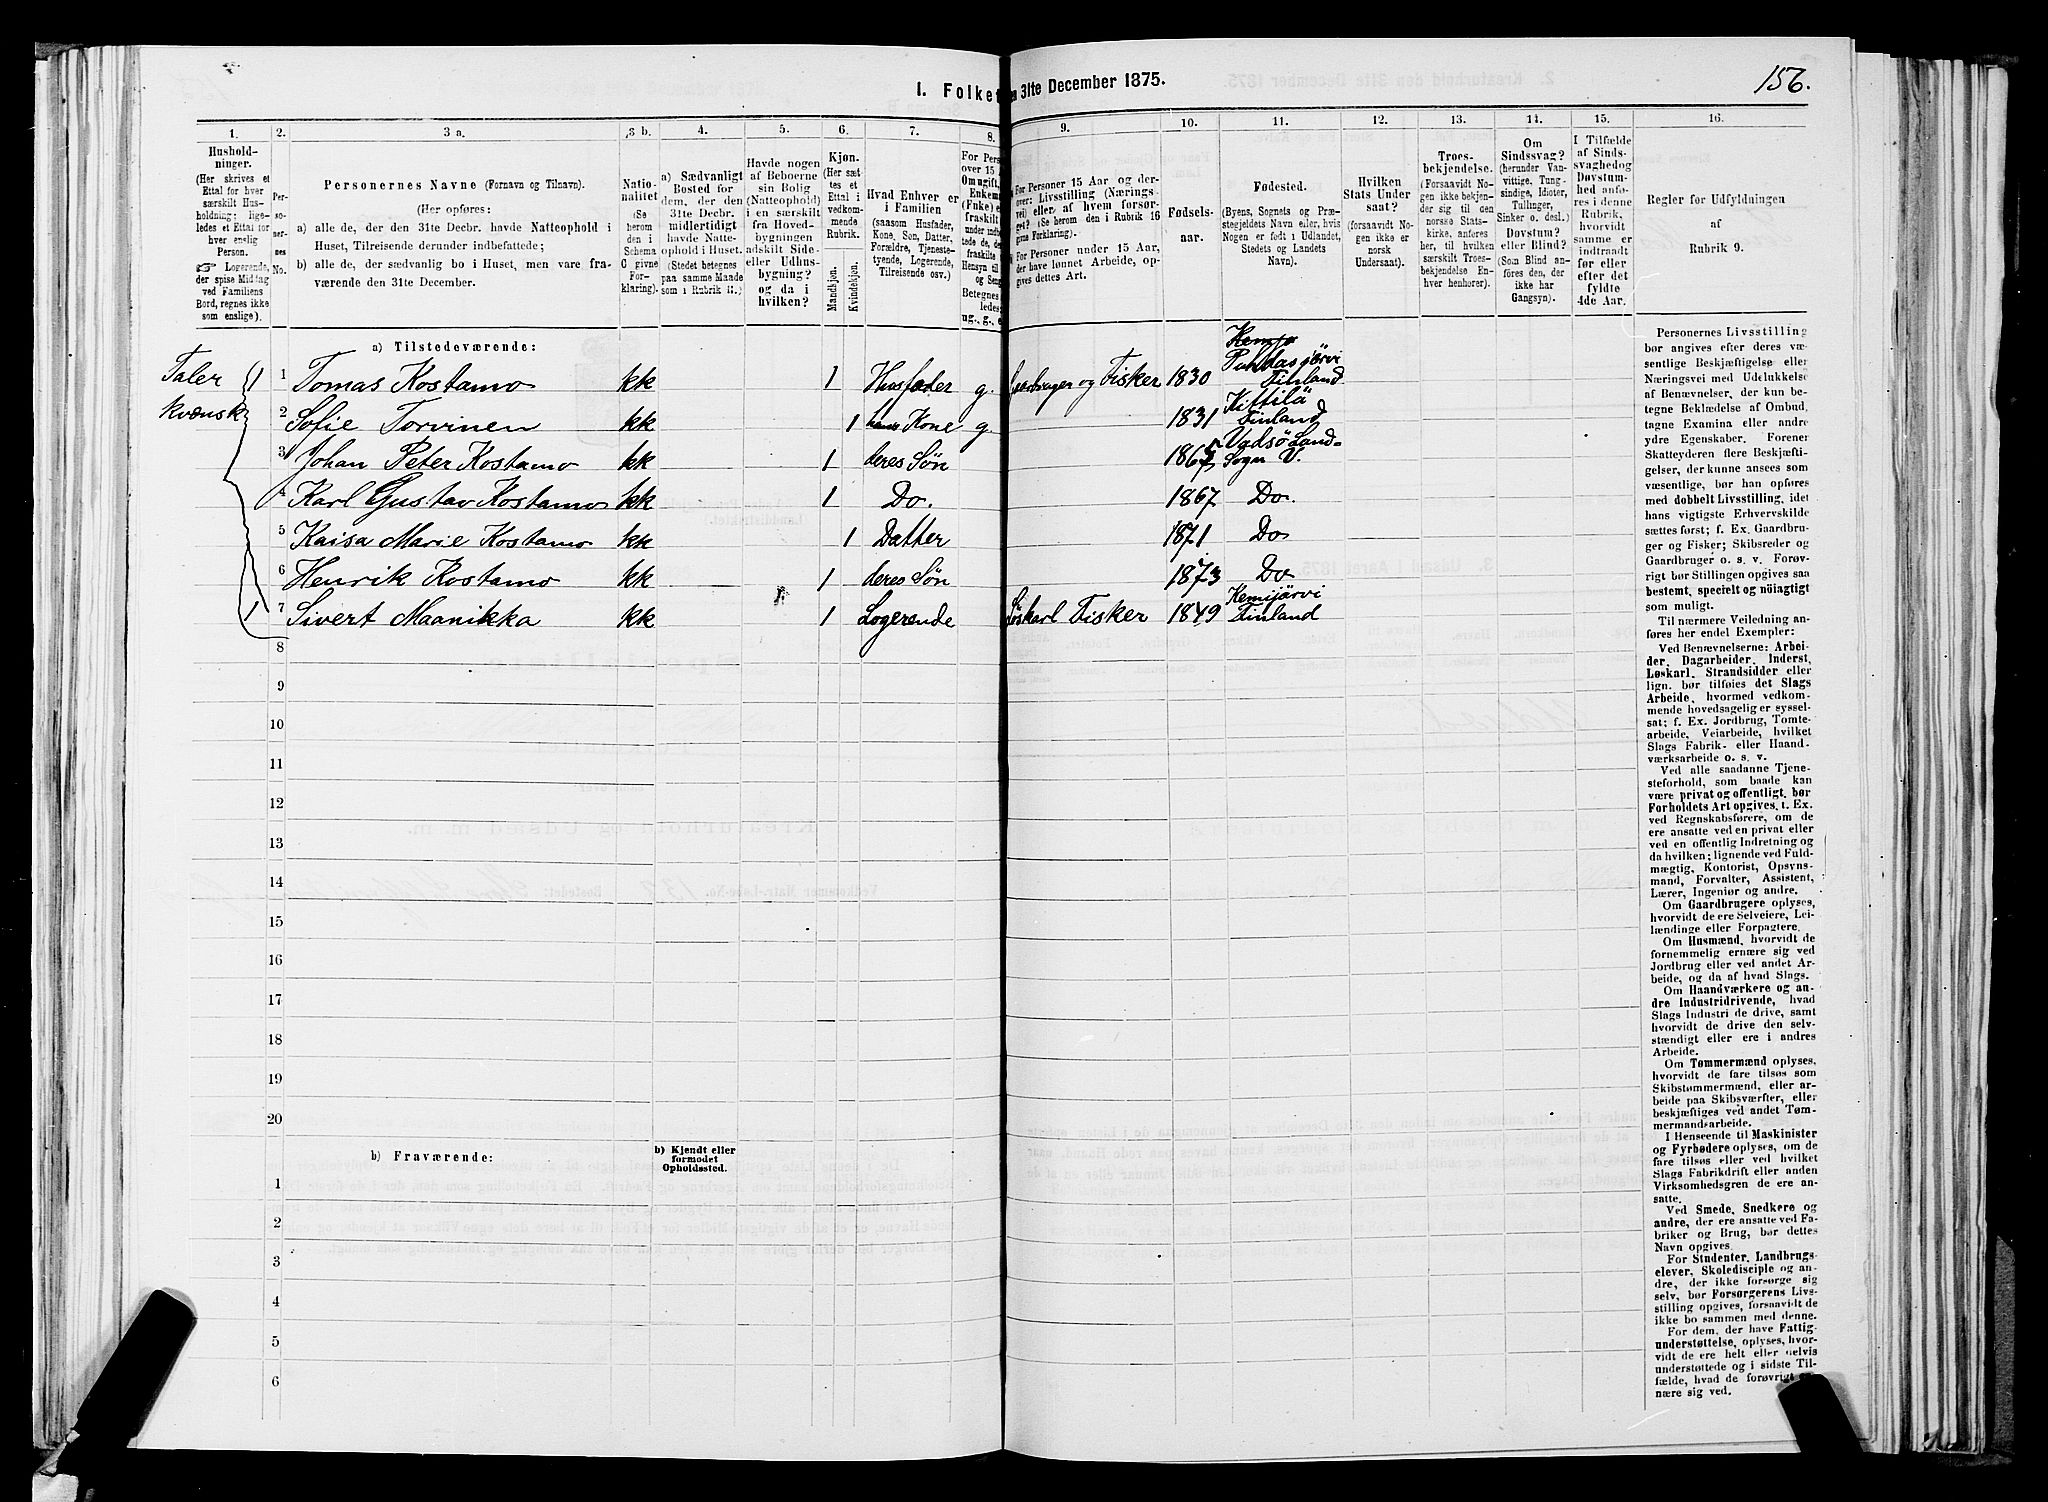 156.
I. Folket
n 31te December 1875.
1. 2. 3 a. 3 b. 4. 5. 6. 7. 8. 9. 10. 11. 12. 13. 14. 15. 16.
Hushold-
ninger.
(Her skrives et
Ettal for hver
særskilt Hus-
holdning; lige-
ledes et Ettal
for hver
enslig
Person.
☞ Logerende,
der spise Middag
ved Familiens
Bord, regnes ikke
som enslige).
Per-
so-
ner-
nes
No.
Personernes Navne (Fornavn og Tilnavn).
(Her opføres:
a) alle de, der den 31te Decbr. havde Natteophold i
Huset, Tilreisende derunder indbefattede;
b) alle de, der sædvanlig bo i Huset, men vare fra-
værende den 31te December.
Natio-
nalitet
(Se
herom
den i
Schema
C givne
For-
klaring).
a) Sædvanligt
Bosted for
dem, der den
31te Decbr.
midlertidigt
havde Natte-
ophold i Huset.
(Stedet betegnes
paa samme Maade
som i Rubrik 11.)
Havde nogen
af Beboerne
sin Bolig
(Natteophold)
i en særskilt
fra Hoved-
bygningen
adskilt Side-
eller Udhus-
bygning?
og da i
hvilken?
Kjøn.
(Her sæt-
tes et
Ettal i
vedkom-
mende
Rubrik.
Mandkjøn.
Kvindekjøn.
Hvad Enhver er
i Familien
(saasom Husfader,
Kone, Søn, Datter,
Forældre, Tjeneste-
tyende, Logerende,
Tilreisende osv.).
For Pers
over 15 A
Omugift,
Enkem
(Fuke) e
fraskilt
under indbe
tede de, de
fraskilte
Hensyn til
og Sen
Betegnes
ledes:
ug., g., e
For Personer 15 Aar og der-
over: Livsstilling (Nærings-
vei) eller af hvem forsør-
get? (Se herom den i Rubrik 16
givne Forklaring).
For Personer under 15 Aar,
der have lønnet Arbeide, op-
gives dettes Art.
Fødsels-
aar.
Fødested.
(Byens, Sognets og Præ-
stegjeldets Navn eller, hvis
Nogen er født i Udlandet,
Stedets og Landets
Navn).
Hvilken
Stats Under
saat?
(forsaavidt No-
gen ikke er
norsk
Undersaat).
Troes-
bekjendelse.
(Forsaavidt No-
gen ikke bekjen-
der sig til den
norske Stats-
kirke, anføres
her, til hvilken
særskilt Troes-
bekjendelse En-
hver henhører).
Om
Sindssvag?
(herunder Van-
vittige, Tung-
sindige, Idioter,
Tullinger,
Sinker o. desl.)
Døvstum?
eller Blind?
(Som Blind an-
føres den, der
ikke har
Gangsyn).
I Tilfælde
af Sinds-
svaghed og
Døvstum-
hed anfø-
res i denne
Rubrik,
hvorvidt
samme er
indtraadt
før eller
efter det
fyldte
4de Aar.
Regler for Udfyldningen
af
Rubrik 9.
a) Tilstedeværende:
Taler
kvænsk
1 1 Tomas Kostamo kk 1 Husfader g. Gaardbruger og Fisker 1830 Kemjo Pudasjärvi Finland
2 Sofie Torvinen kk 1 hans Kone g. 1831 Kittilä Finland
3 Johan Peter Kostamo kk 1 deres Søn 1865 Vadsö Land-
Sogn V.
4 Karl Gustav Kostamo kk 1 Do. 1867 Do.
5 Kaisa Marie Kostamo kk 1 Datter 1871 Do
6 Henrik Kostamo kk 1 deres Søn 1873 Do
1 7 Sivert Maanikka kk 1 Logerende Løskarl Fisker 1849 Kemijärvi Finland
8
9
10
11
12
13
14
15
16
17
18
19
20
b) Fraværende:
b) Kjendt eller
formodet
Opholdssted.
1
2
3
4
5
6
Personernes Livsstilling
bør angives efter deres væ-
sentlige Beskjæftigelse eller
Næringsvei med Udelukkelse
af Benævnelser, der kun be-
tegne Beklædelse af Ombud,
tagne Examina eller andre
ydre Egenskaber. Forener
Skatteyderen flere Beskjæfti-
gelser, der kunne ansees som
væsentlige, bør han opføres
med dobbelt Livsstilling, idet
hans vigtigste Erhvervskilde
sættes først; f. Ex. Gaardbru-
ger og Fisker; Skibsreder og
Gaardbruger o. s. v. Forøv-
rigt bør Stillingen opgives saa
bestemt, specielt og nøiagtigt
som muligt.
Til nærmere Veiledning an-
føres her endel Exempler:
Ved Benævnelserne: Arbei-
der, Dagarbeider, Inderst,
Løskarl, Strandsidder eller
lign. bør tilføies det Slags
Arbeide, hvormed vedkom-
mende hovedsagelig er syssel-
sat; f. Ex. Jordbrug, Tomte-
arbeide, Veiarbeide, hvilket
Slags Fabrik- eller Haand-
værksarbeide o. s. v.
Ved alle saadanne Tjene-
steforhold, som baade kan
være privat og offentligt, bør
Forholdets Art opgives, t. Ex.
ved Regnskabsførere, om de
ere ansatte ved en privat eller
ved en offentlig Indretning og
da hvilken; lignende ved Fuld-
mægtig, Kontorist, Opsyns-
mand, Forvalter, Assistent,
Lærer, Ingeniør og andre.
Om Gaardbrugere oplyses,
hvorvidt de ere Selveiere, Lei-
lændinge eller Forpagtere.
Om Husmænd, hvorvidt de
fornemmelig ernære sig ved
Jordbrug eller ved andet Ar-
beide, og da af hvad Slags.
Om Haandværkere og an-
dre Industridrivende, hvad
Slags Industri de drive, samt
hvorvidt de drive den selv-
stændigt eller ere i andres
Arbeide.
Om Tømmermænd oplyses,
hvorvidt de fare tilsøs som
Skibstømmermænd, eller ar-
beide paa Skibsværfter, eller
beskjæftiges ved andet Tøm-
mermandsarbeide.
I Henseende til Maskinister
og Fyrbødere oplyses, om de
fare tilsøs eller ved hvilket
Slags Fabrikdrift eller anden
Virksomhedsgren de ere an-
satte.
Ved Smede, Snedkere og
andre, der ere ansatte ved Fa-
briker og Brug, bør dettes
Navn opgives.
For Studenter, Landbrugs-
elever, Skoledisciple og an-
dre, der ikke forsørge sig
selv, bør Forsørgerens Livs-
stilling opgives, forsaavidt de
ikke bo sammen med denne.
For dem, der have Fattig-
understøttelse, oplyses, hvor-
vidt de ere helt eller delvis
understøttede og i sidste Til-
fælde, hvad de forøvrigt er-
nære sig ved.